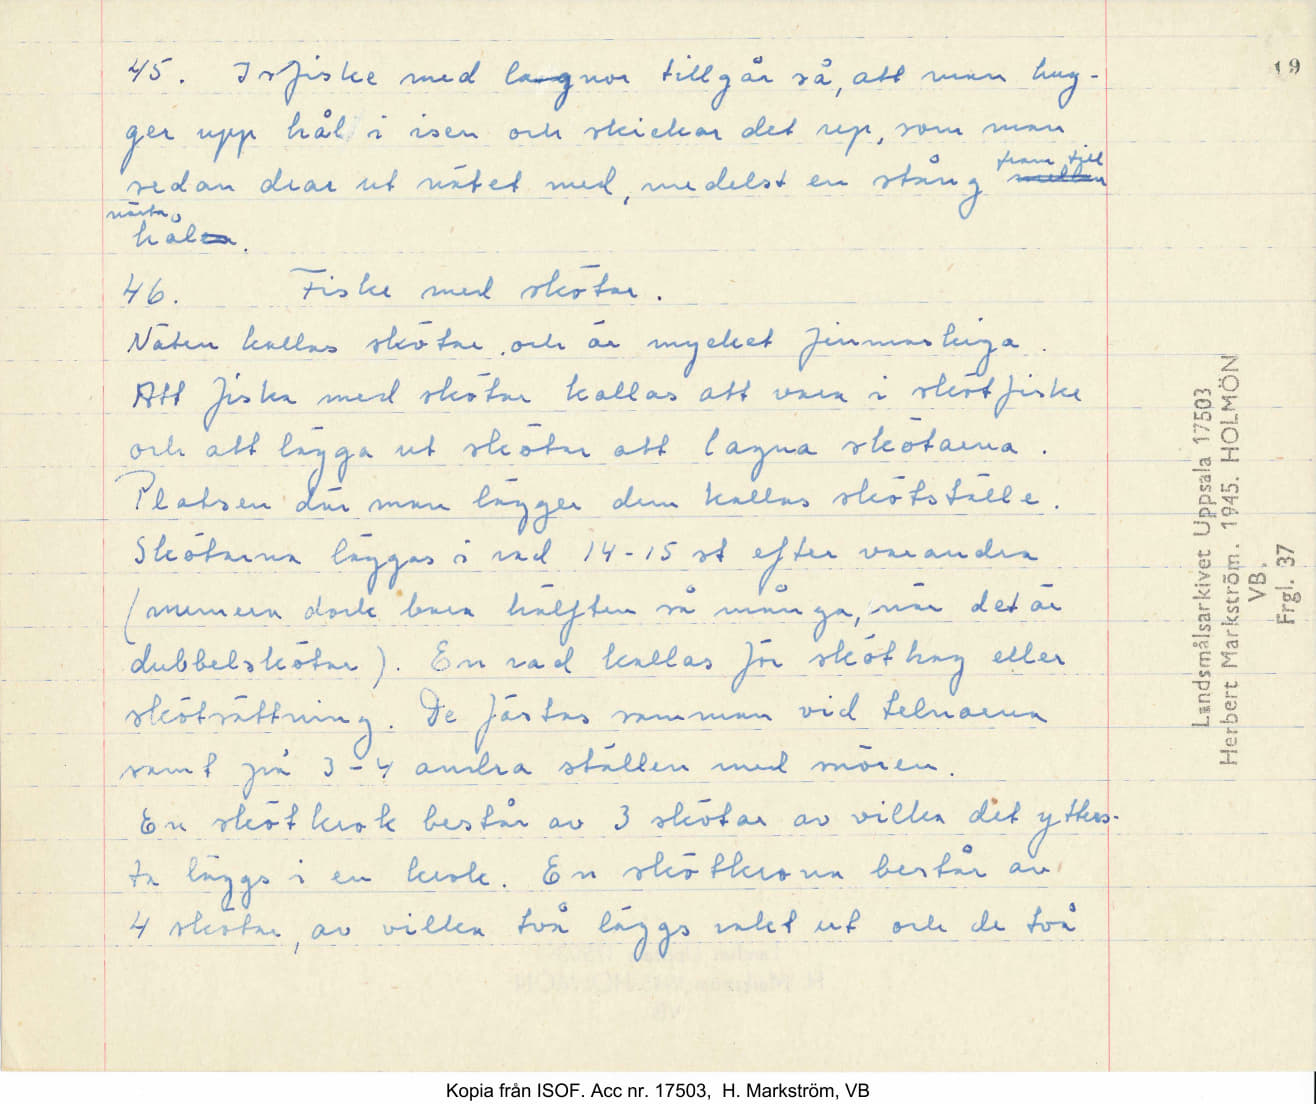 19
45. Isfiske med lagnor tillgår så, att man hug-
ger upp hål i isen och skickar det rep, som man
sedan drar ut nätet med, medelst en stång fram till
nästa
hål.
46. Fiske med skötar.
Näten kallas skötar och är mycket finmaskiga.
Att fiska med skötar kallas att vara i skötfiske
och att lägga ut skötar att lagna skötarna.
Platsen där man lägger dem kallas skötställe.
Skötarna läggas i rad 14-15 st efter varandra
(numera dock bara hälften så många, när det är
dubbelskötar). En rad kallas för sköthag eller
skötsättning. De fästas samman vid telnarna
samt på 3-4 andra ställen med snören.
En skötkrok består av 3 skötar av vilka det ytters-
ta läggs i en krok. En skötkrona består av
4 skötar, av vilka två läggs rakt ut och de två
Landsmålsarkivet Uppsala 17503
Herbert Markström. 1945. HOLMÖN
VB.
Frgl. 37
Kopia från ISOF. Acc nr. 17503, H. Markström, VB